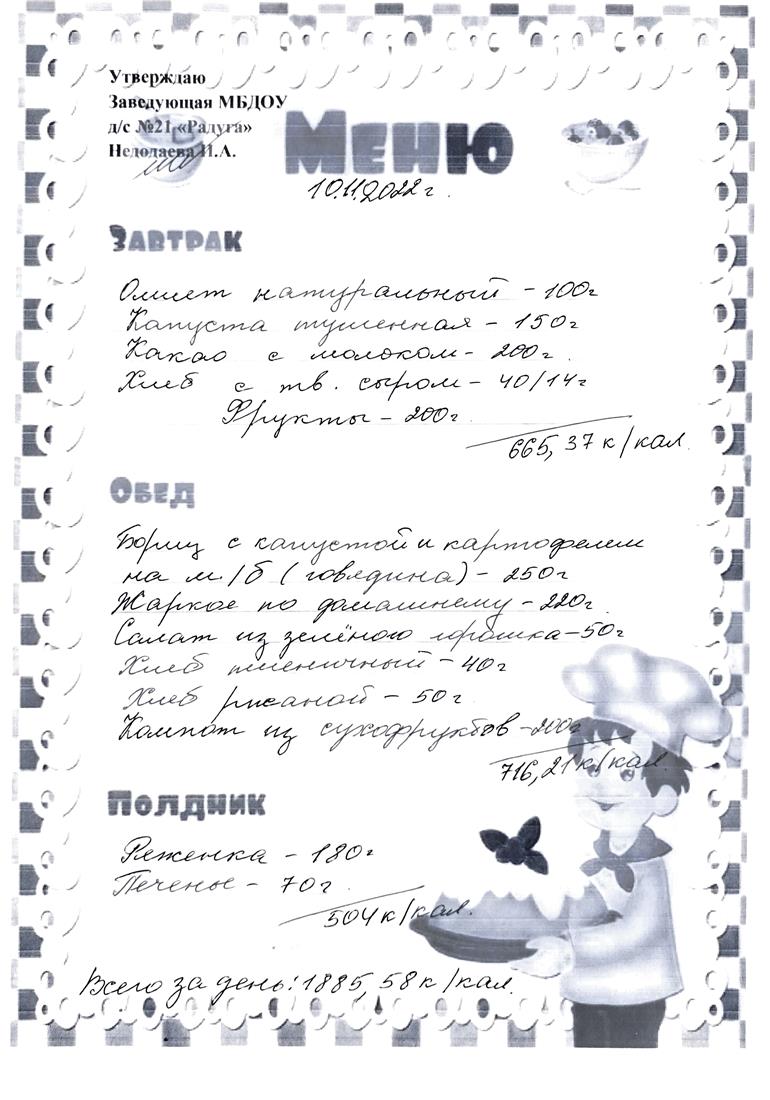 Утверждаю
Заведующая МБДОУ
д/с №21 «Радуга»
Недодаева И.А.
Меню
10.11.2022г.
Завтрак
Омлет натуральный - 100г
Капуста тушенная - 150г
Какао с молоком - 200г.
Хлеб с тв. сыром - 40/14г
Фрукты - 200г.
665,37 к/кал.
Обед
Борщ с капустой и картофелем
на м/б (говядина) - 250г
Жаркое по домашнему - 220г.
Салат из зелёного горошка - 50г
Хлеб пшеничный - 40г
Хлеб ржаной - 50г
Компот из сухофруктов - 200г
716,21 к/кал.
Полдник
Ряженка - 180г
Печенье - 70г.
504 к/кал.
Всего за день: 1885,58 к/кал.